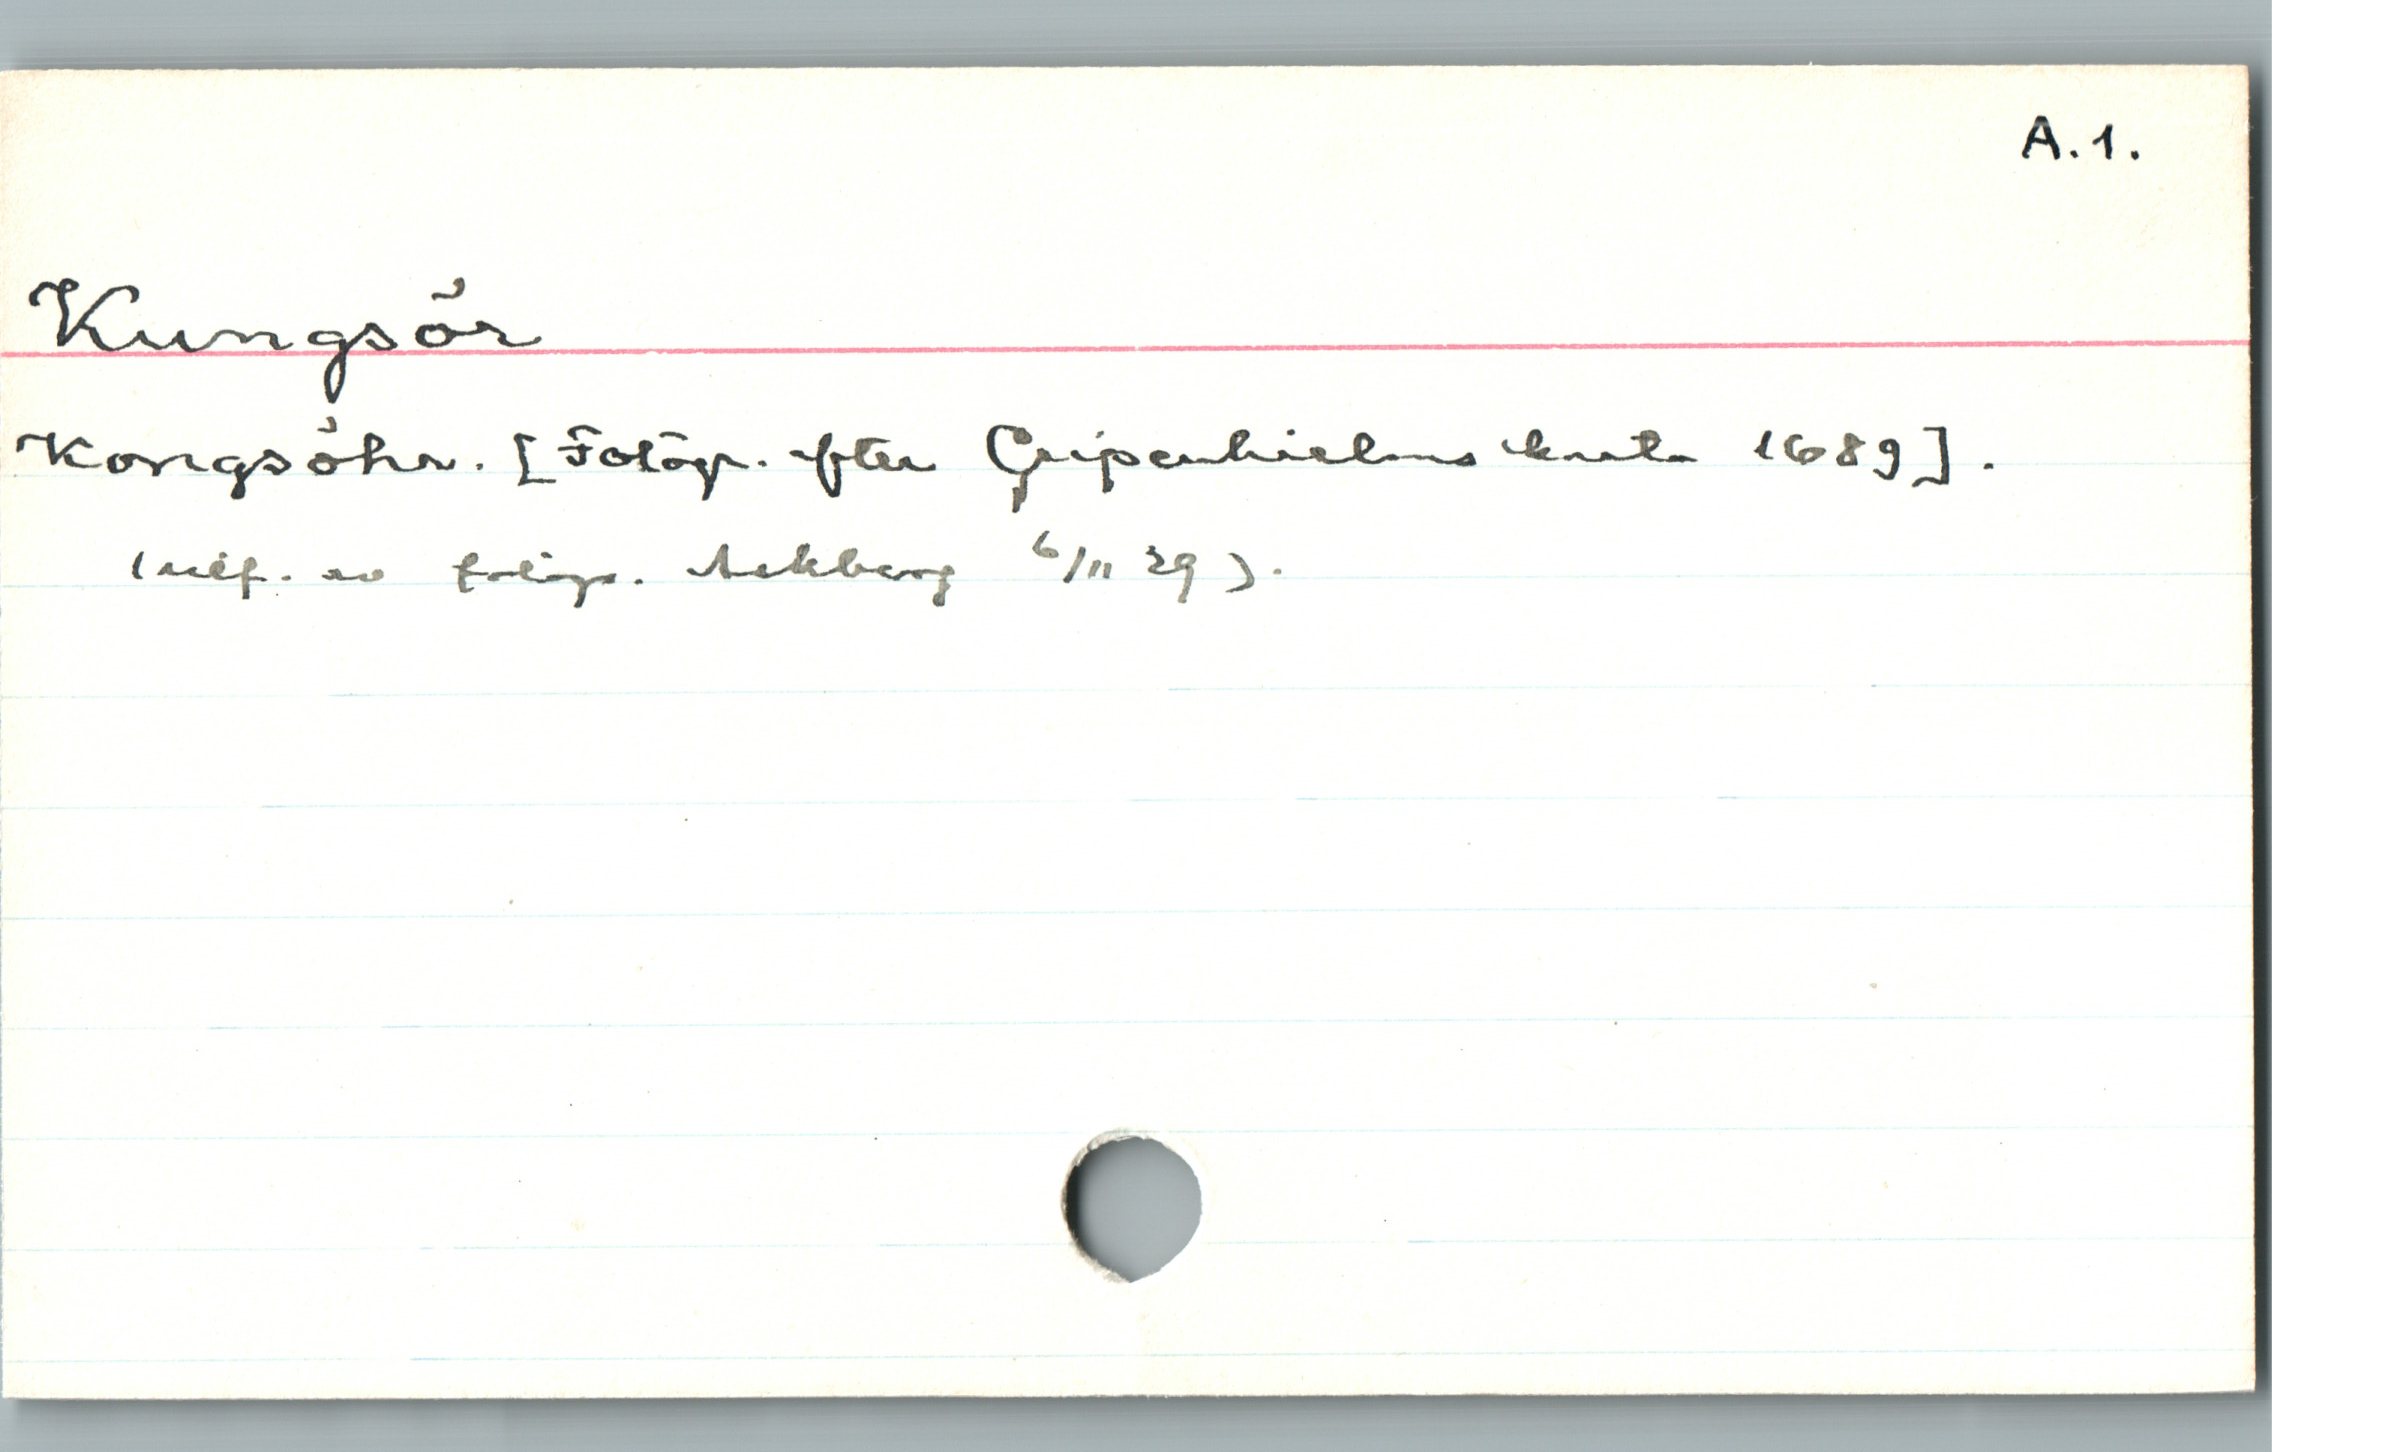 A.1.
Kungsör
Kongsöhr. [Fotogr. efter Gripenhielms karta 1689].
(utf. av fotogr. 6/11 29).